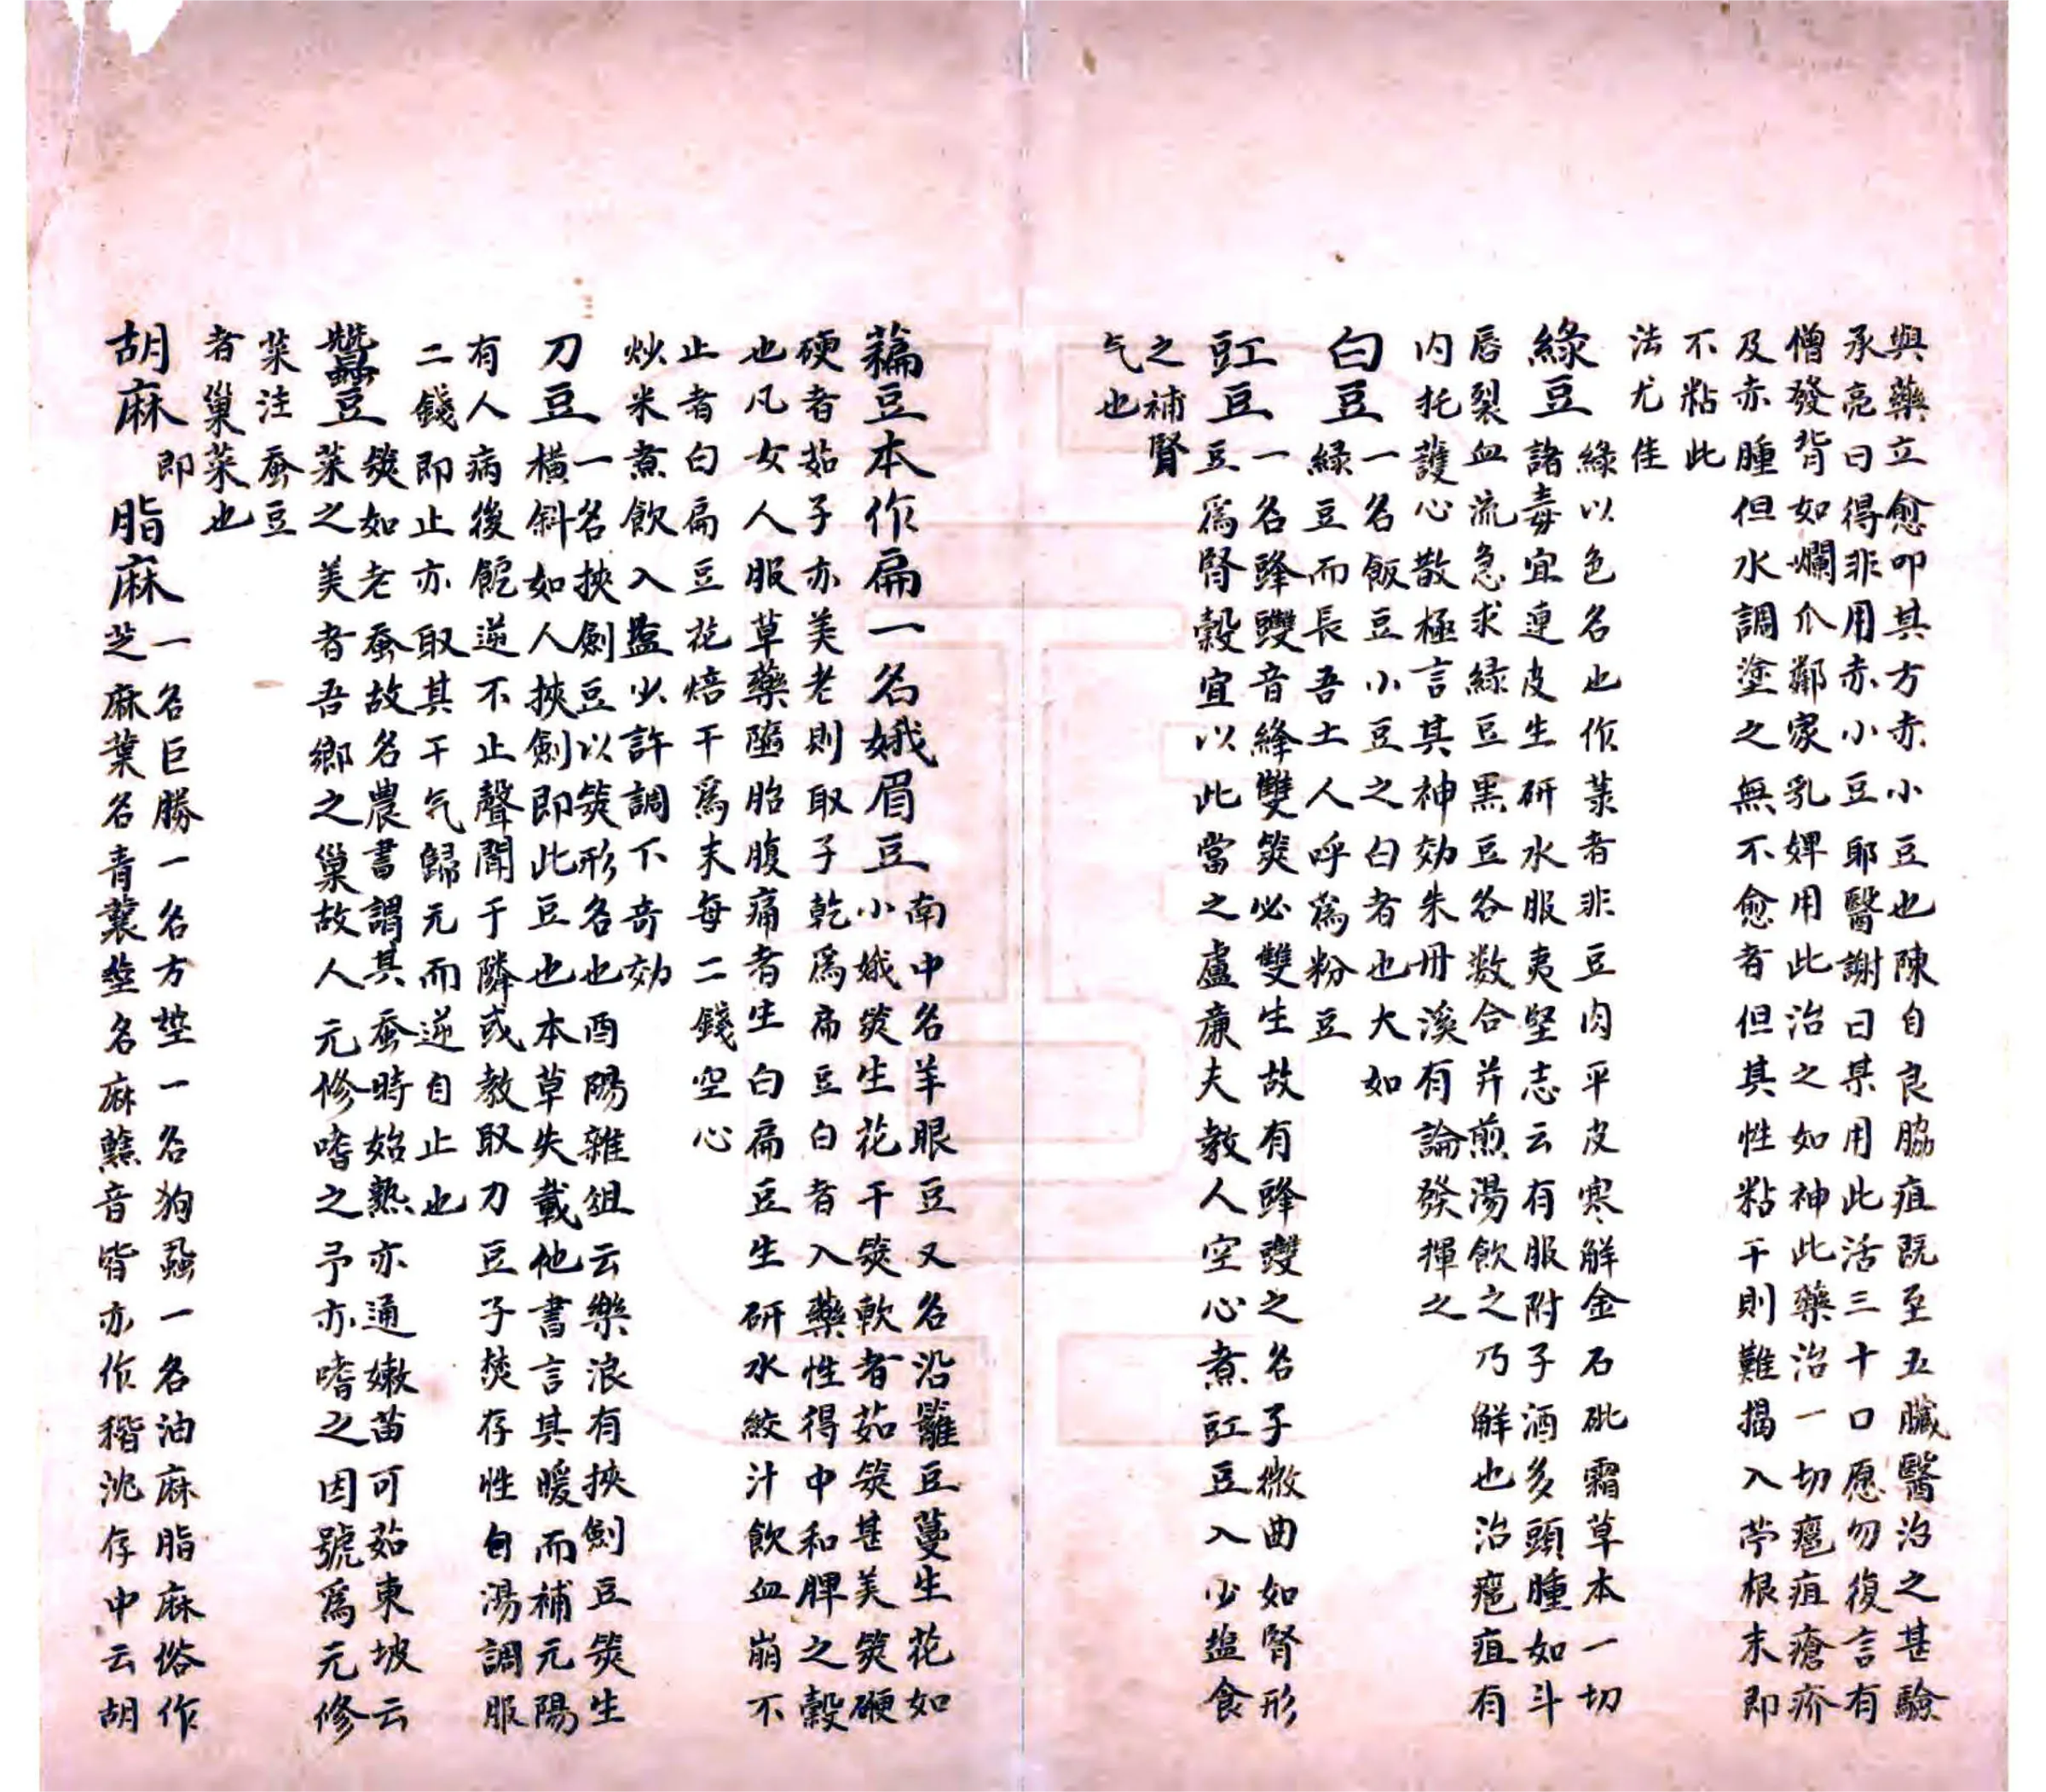 與藥立愈叩其方赤小豆也陳自良脇疽既至五臟醫治之甚驗
承亮曰得非用赤小豆耶醫謝曰某用此活三十口愿勿復言有
僧發背如爛爪鄰家乳婢用此治之如神此藥治一切瘡疽瘡疥
及赤腫但水調塗之無不愈者但其性粘干則難揭入苧根末即
不粘此
法尤佳
綠豆綠以色名也作菉者非豆肉平皮寒解金石砒霜草本一切
諸毒宜連皮生研水服夷堅志云有服附子酒多頭腫如斗
唇裂血流急求綠豆黑豆各数合并煎湯飲之乃解也治瘡疽有
內托護心散極言其神効朱丹溪有論發揮之
白豆一名飯豆小豆之白者也大如
綠豆而長吾土人呼爲粉豆
豇豆一名䜶䝄音絳雙莢必雙生故有䜶䝄之名子微曲如腎形
豆爲腎穀宜以此當之盧廉夫教人空心煮豇豆入少盐食
之補腎
气也
藊豆本作扁一名娥眉豆南中名羊眼豆又名沿籬豆蔓生花如
小娥莢生花干莢軟者茹莢甚美莢硬
硬者茹子亦美老則取子乾爲扁豆白者入藥性得中和脾之穀
也凡女人服草藥墮胎腹痛者生白扁豆生研水絞汁飲血崩不
止者白扁豆花焙干爲末每二錢空心
炒米煮飲入盐少許調下奇効
刀豆一名挾劍豆以莢形名也酉陽雜俎云樂浪有挾劍豆莢生
橫斜如人挾劍即此豆也本草失載他書言其暖而補元陽
有人病後飽逆不止聲聞于隣或教取刀豆子焚存性白湯調服
二錢即止亦取其干气歸元而逆自止也
蠶豆莢如老蚕故名農書謂其蚕時始熟亦通嫩苗可茹東坡云
菜之美者吾鄉之巢故人元修嗜之予亦嗜之因號爲元修
菜注蚕豆
者巢菜也
胡麻 即脂麻一名巨勝一名方莖一名狗蝨一名油麻脂麻俗作
芝麻葉名青蘘莖名麻䕸音皆亦作稭沈存中云胡